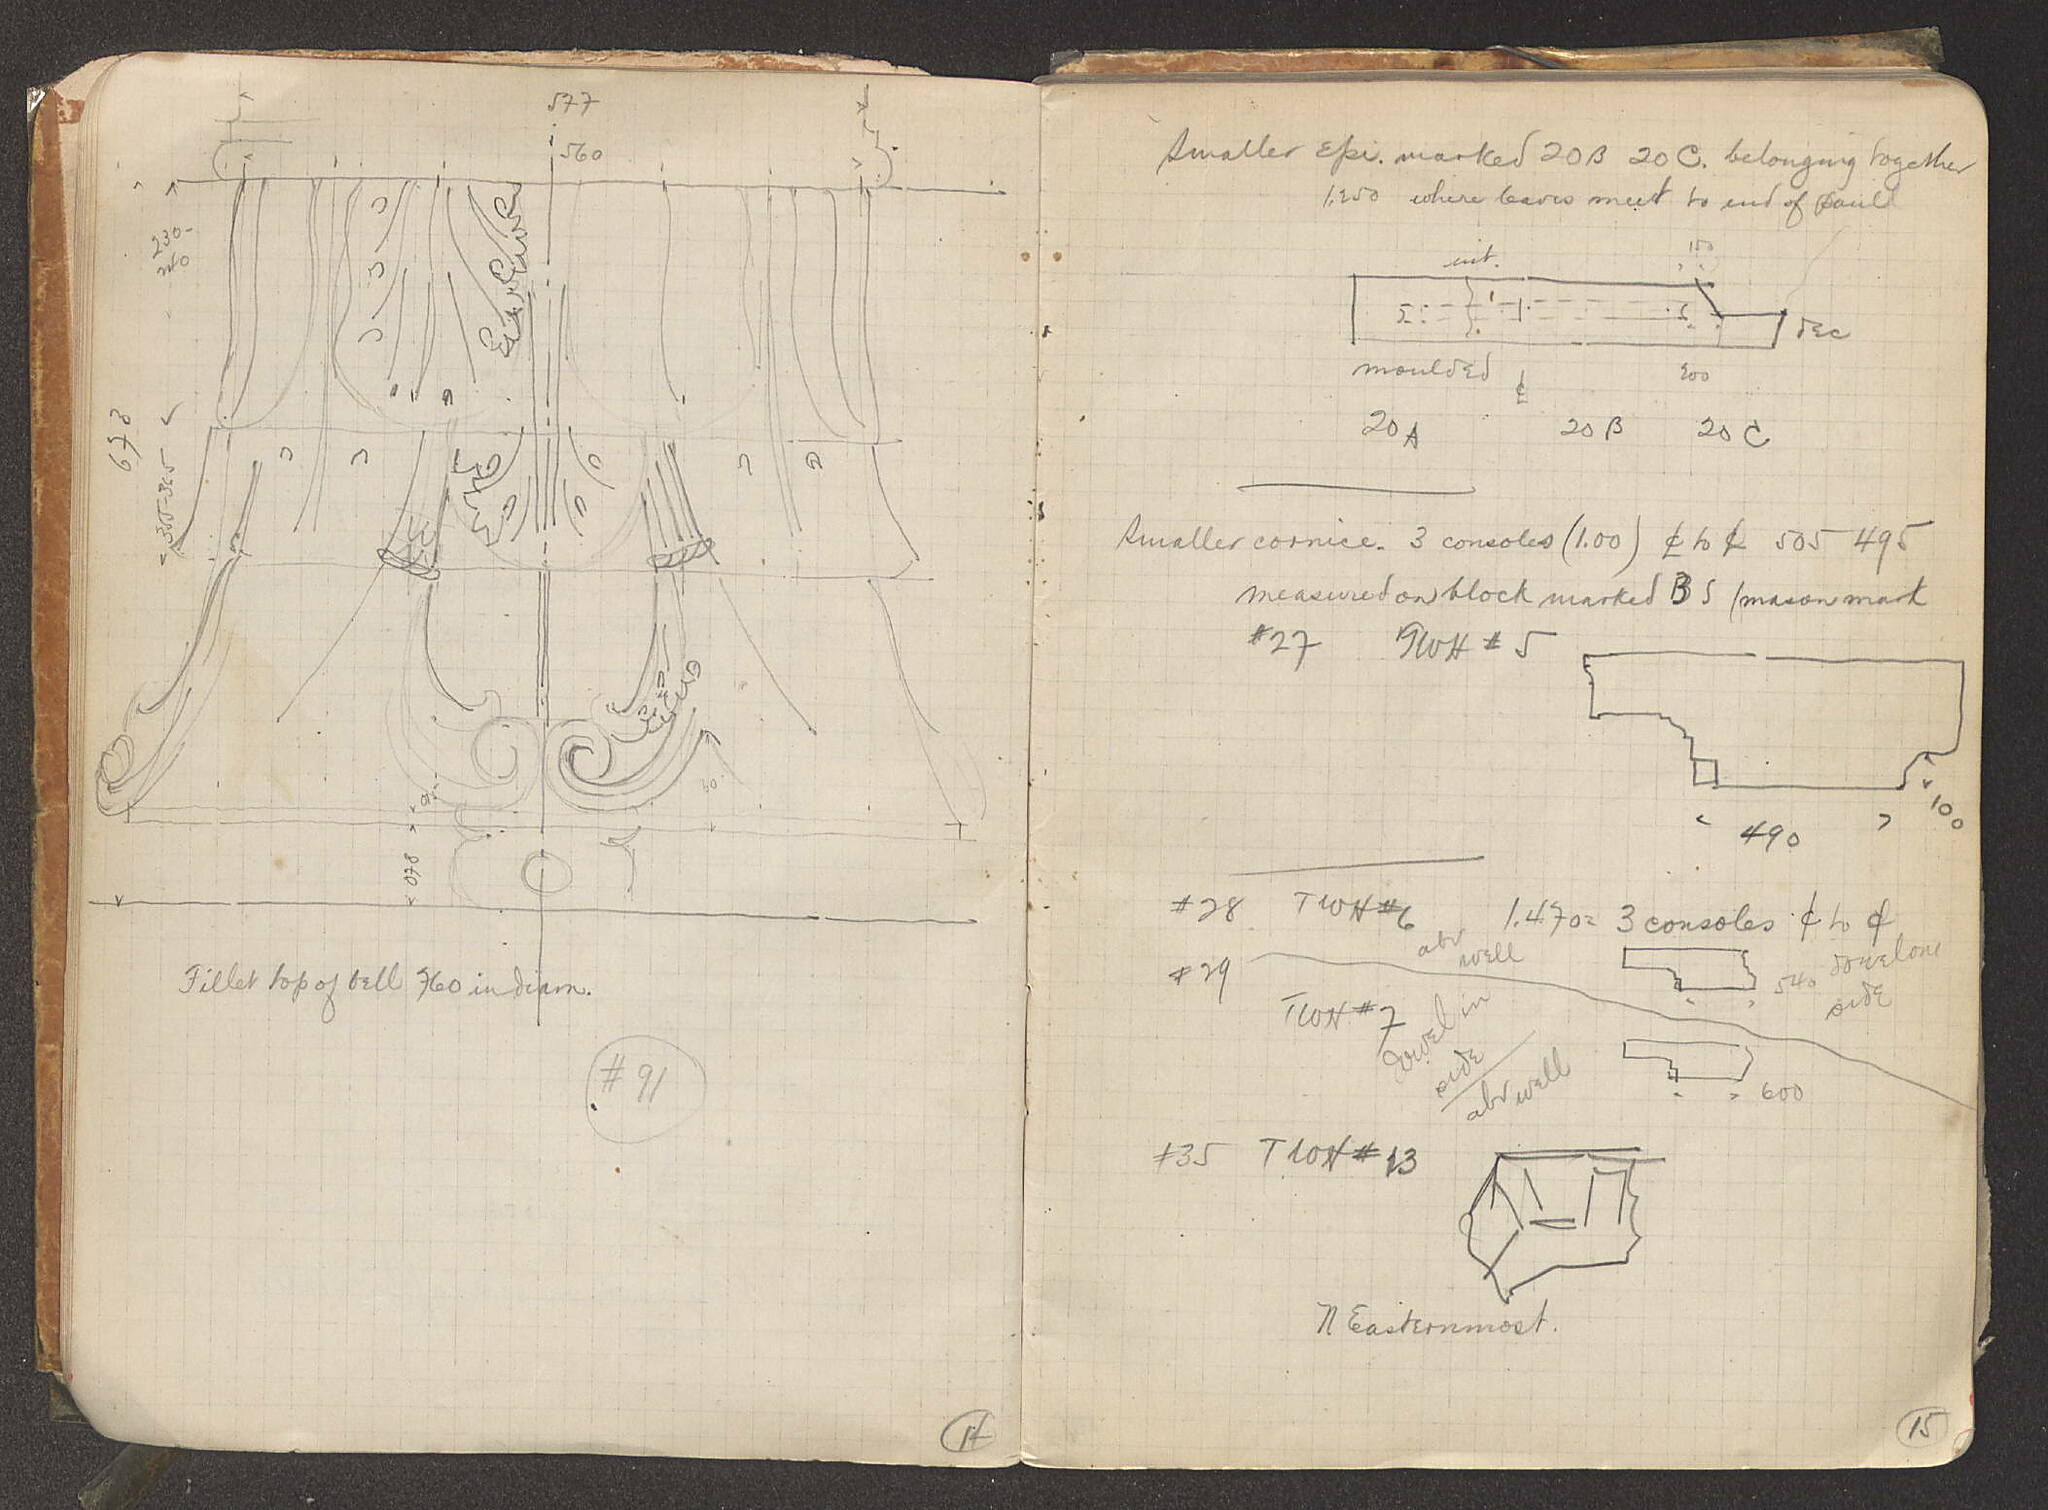 577
560
230-
240
673
355-365
078
Fillet top of bell 760 in diam.
#91
14
Smaller Epi. marked 20B 20C. belonging together
1.250 where leaves meet to end of
int.
150
dec
moulded
200
20A 20B 20C
Smaller cornice. 3 consoles (1.00) ¢ to ¢ 505 495
measured on block marked B S (mason mark
#27 TWH #5
100
490
#28 TWH #6 1.470= 3 consoles ¢ to ¢
abv
well
540 dowel one
side
#29
TWH #7
dowel in
side
abv well
600
#35 TWH #13
N Easternmost.
15